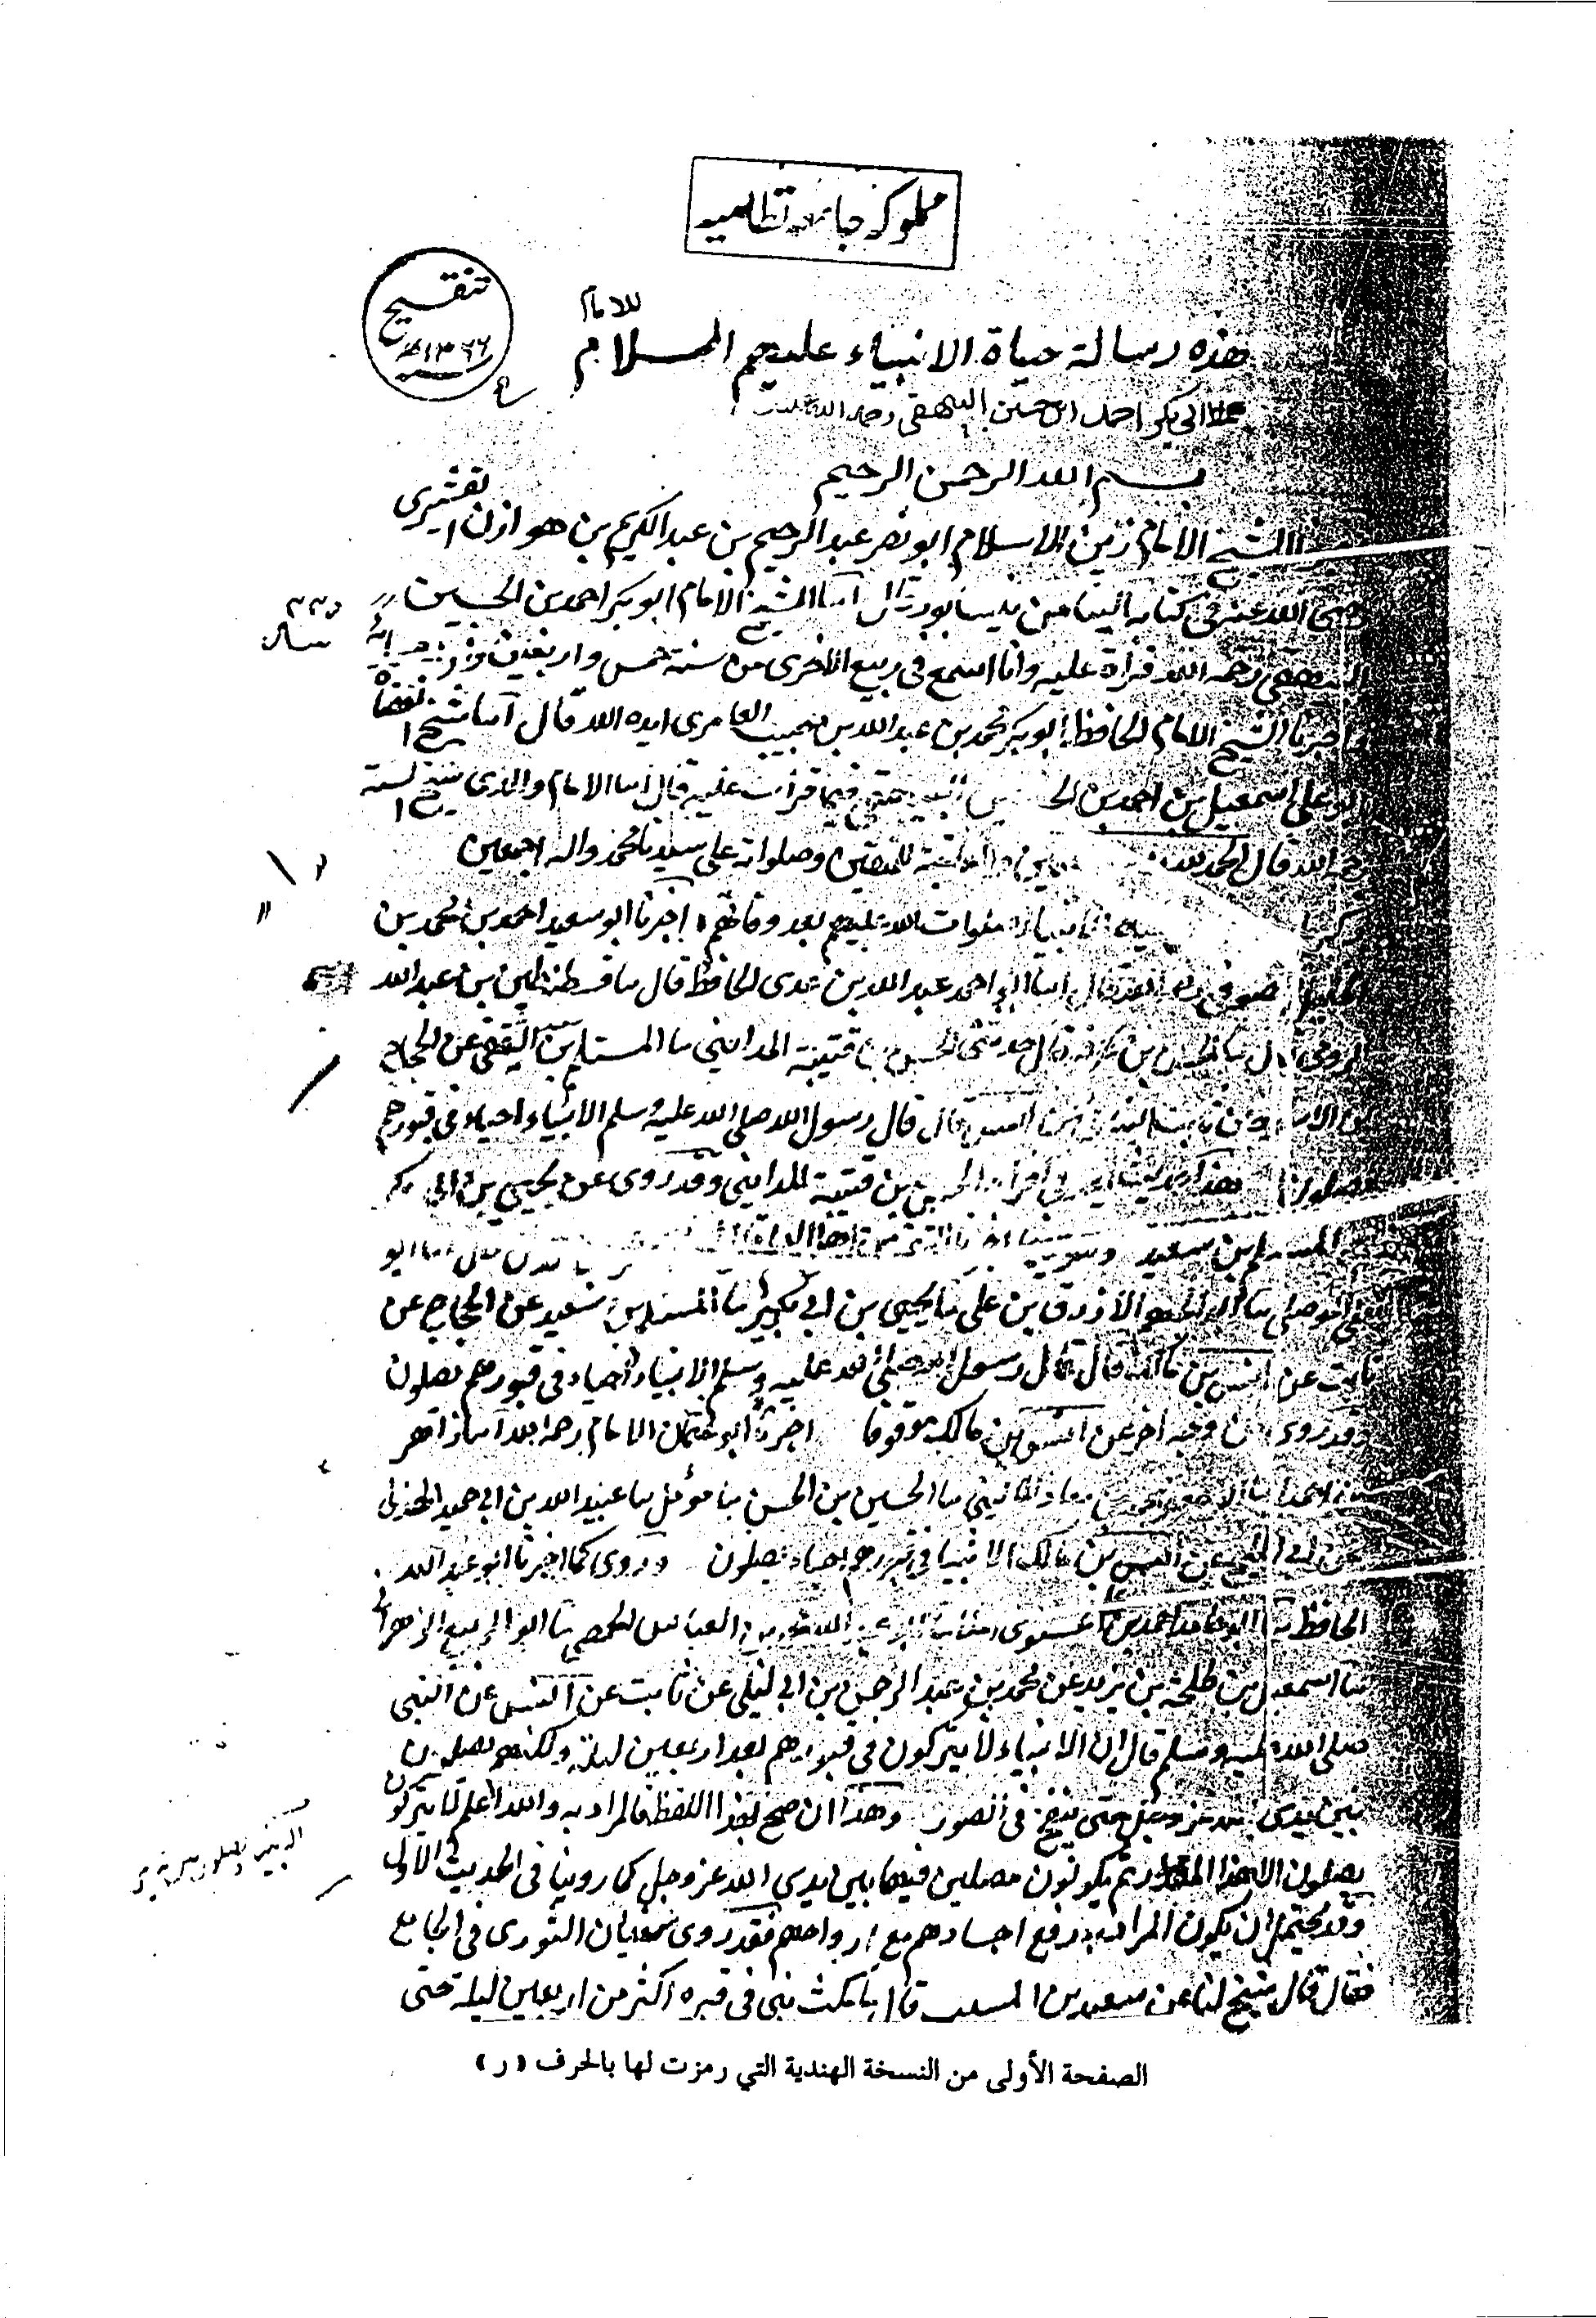 مملوكه جامعه نظاميه
تنقيح
١٣٦٦
للامام
هذه رسالة حياة الانبياء عليهم السلام
ابى بكر احمد ابن حسين البيهقى رحمه الله
بسم الله الرحمن الرحيم
الشيخ الامام زين الاسلام ابو نصر عبد الرحيم بن عبد الكريم بن هوازن القشيرى
رضى الله عنه فى كتابه الينا من نيسابور قال انبا الشيخ الامام ابو بكر احمد بن الحسين
البيهقى رحمه الله قراة عليه وانا اسمع فى ربيع الاخرى من سنة خمس واربعين
واخبرنا الشيخ الامام الحافظ ابو بكر محمد بن عبد الله بن حبيب العامرى ايده الله قال انبا شيخ القضاة
ابو على اسمعيل بن احمد بن البيهقى فيما قرات عليه قال انبا الامام والدى شيخ السنة
رحمه الله قال الحمد لله والعاقبة للمتقين وصلواته على سيدنا محمد واله اجمعين
الانبياء صلوات الله عليهم بعد وفاتهم اخبرنا ابو سعيد احمد بن محمد بن
الصوفى رحمه الله قال انبا ابو احمد عبد الله بن عدى الحافظ قال ثنا قسطنطين بن عبد الله
الرومى قال ثنا الحسن بن عرفة قال حدثنى الحسن بن قتيبة المداينى ثنا المستلم بن الثقفى عن الحجاج
بن الاسود عن ثابت البنانى عن انس قال قال رسول الله صلى الله عليه وسلم الانبياء احياء فى قبورهم
يصلون هذا حديث يعد فى افراد الحسن بن قتيبة المداينى وقد روى عن يحيى بن ابى بكر
المستلم بن سعيد انبا ابو
يعلى الموصلى ثنا ابو الجهم الازرق بن على ثنا يحيى بن ابى بكير ثنا المستلم بن سعيد عن الحجاج عن
ثابت عن انس بن مالك قال قال رسول الله صلى الله عليه وسلم الانبياء احياء فى قبورهم يصلون
وقد روى من وجه اخر عن انس بن مالك موقوفا اخبرنا ابو عثمان الامام رحمه الله انبا زاهر
بن احمد انبا ابو جعفر محمد بن معاذ المالينى ثنا الحسين بن الحسن ثنا مؤمل ثنا عبيد الله بن ابى حميد الهذلى
عن ابى المليح عن انس بن مالك الانبيا فى قبورهم احياء يصلون وروى كما اخبرنا ابو عبد الله
الحافظ ثنا ابو حامد احمد بن على الحسنوى املاء ثنا ابو عبد الله محمد بن العباس الحمصى ثنا ابو الربيع الزهرانى
ثنا اسمعيل بن طلحة بن يزيد عن محمد بن عبد الرحمن بن ابى ليلى عن ثابت عن انس عن النبى
صلى الله عليه وسلم قال ان الانبياء لا يتركون فى قبورهم بعد اربعين ليلة ولكنهم يصلون
بين يدى الله عز وجل حتى ينفخ فى الصور وهذا ان صح بهذا اللفظ فالمراد به والله اعلم لا يتركون
يصلون الا هذا المقدار ثم يكونون مصلين فيها بين يدى الله عز وجل كما روينا فى الحديث الاول
وقد يحتمل ان يكون المراد به رفع اجسادهم مع ارواحهم فقد روى سفيان الثورى فى الجامع
فقال قال شيخ لنا عن سعيد بن المسيب قال ما مكث نبى فى قبره اكثر من اربعين ليلة حتى
الصفحة الأولى من النسخة الهندية التي رمزت لها بالحرف (ر)